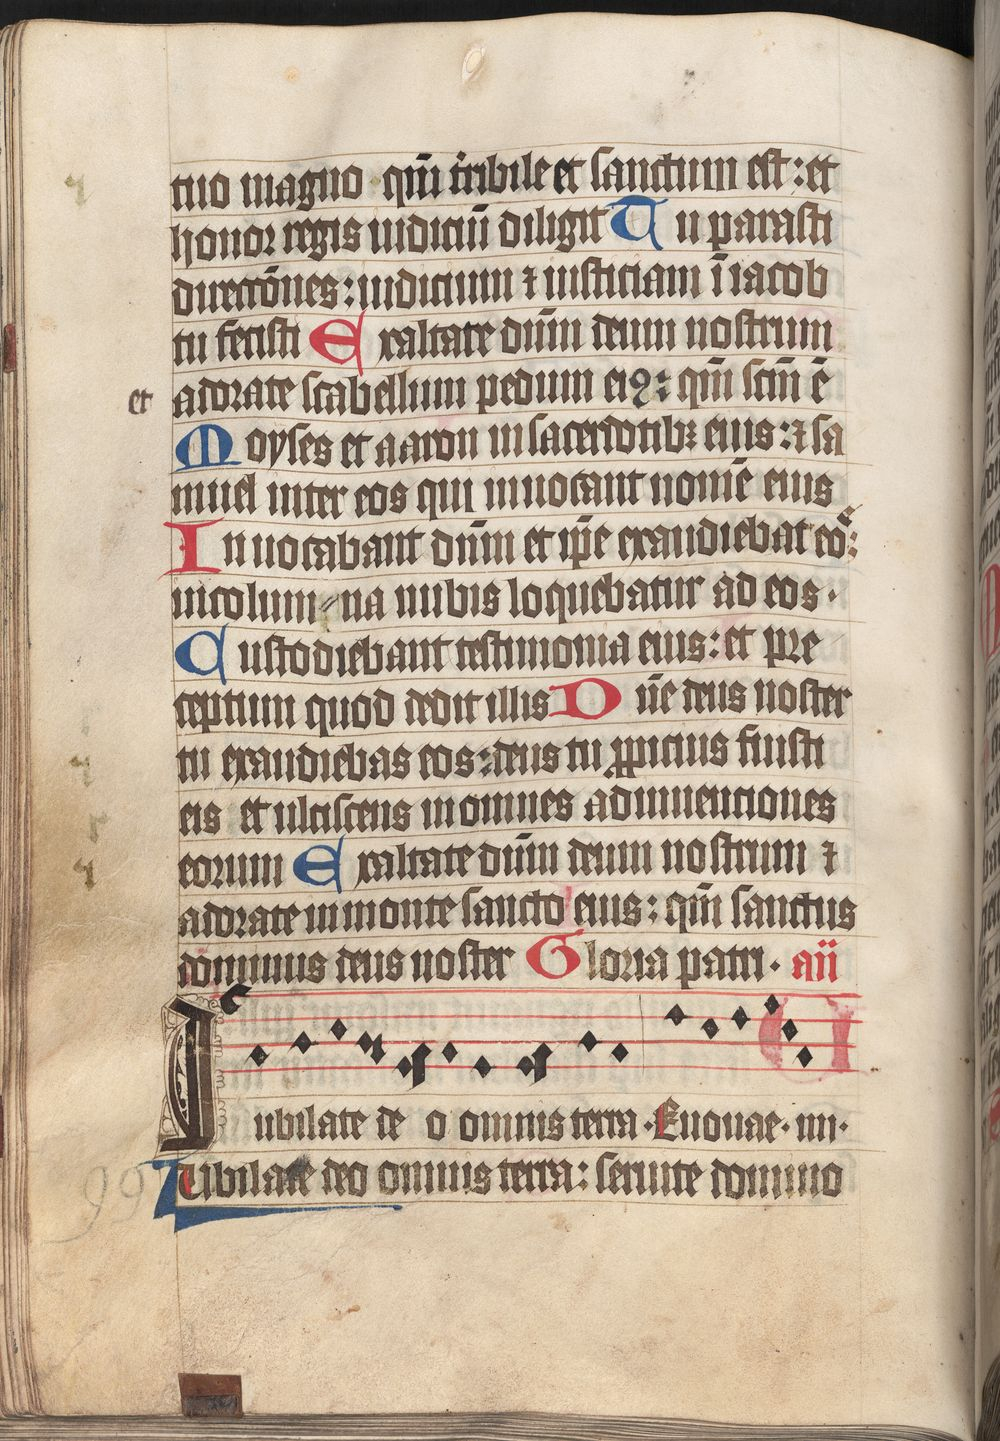 tuo magno qm̄ tr̄ribile et sanctum est: et
honor regis iudiciū diligit Tu parasti
directōnes: iudicium ⁊ iusticiam ī iacob
tu fecisti Exaltate dūm deum nostrum
et adorate scabellum pedum eiꝰ: qm̄ scm̄ ē
Moyses et aaron in sacerdotibꝫ eius: ⁊ sa
muel inter eos qui inuocant nomē eius
Inuocabant dūm et ip̄e exaudiebat eos:
in colum na nubis loquebatur ad eos.
Custodiebant testimonia eius: et pre
ceptum quod dedit illis Dn̄e deus noster
tu exaudiebas eos: deus tu ꝓpicius fuisti
eis et ulciscens in omnes adinuenciones
eorum Exaltate dūm deum nostrum ⁊
adorate in monte sancto eius: qm̄ sanctus
dominus deus noster Gloria patri. añ
Iubilate de o omnis terra. Euouae. iii.
Iubilate deo omnis terra: seruite domino
99